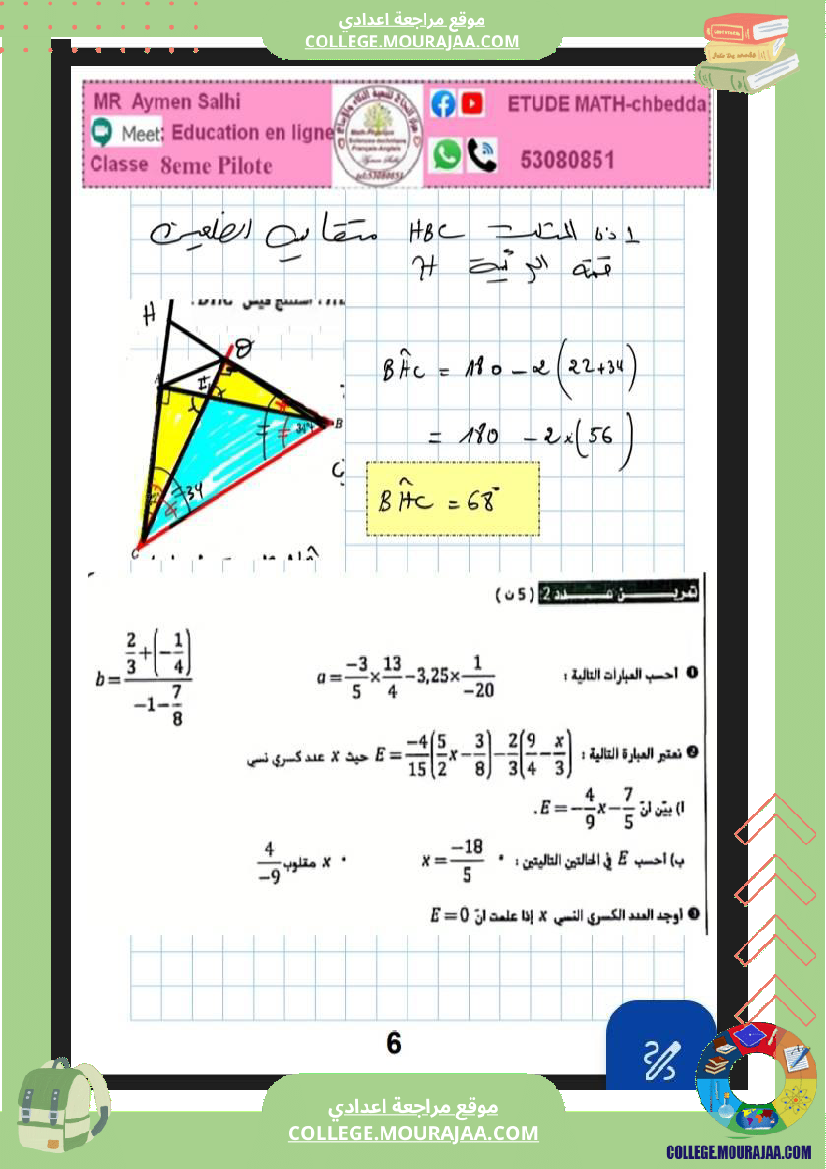 موقع مراجعة اعدادي
COLLEGE.MOURAJAA.COM
MR Aymen Salhi
Meet: Education en ligne
Classe 8eme Pilote
ETUDE MATH-chbedda
53080851
HBC متقايس الضلعين
قمته الرئيسية H
H
B
C
34
BĤC = 180 - 2(22+34)
= 180 - 2×(56)
BĤC = 68°
تمريـــن عـــدد 2 (5 ن)
❶ أحسب العبارات التالية : a = \frac{-3}{5} × \frac{13}{4} - 3,25 × \frac{1}{-20} b = \frac{\frac{2}{3}+(-\frac{1}{4})}{-1-\frac{7}{8}}
❷ نعتبر العبارة التالية : E = \frac{-4}{15}(\frac{5}{2}x - \frac{3}{8}) - \frac{2}{3}(\frac{9}{4} - \frac{x}{3}) حيث x عدد كسري نسبي
ا) بيّن أنّ E = -\frac{4}{9}x - \frac{7}{5}.
ب) أحسب E في الحالتين التاليتين : • x = \frac{-18}{5} • x مقلوب \frac{4}{-9}
❸ أوجد العدد الكسري النسبي x إذا علمت أنّ E = 0
6
موقع مراجعة اعدادي
COLLEGE.MOURAJAA.COM
COLLEGE.MOURAJAA.COM